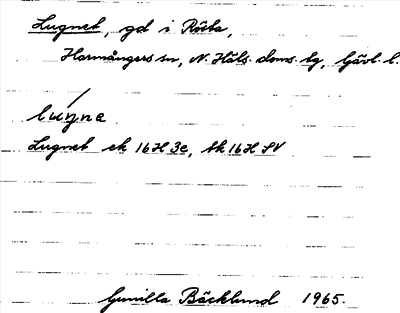 Lugnet, gd i Rösta,
Harmångers sn, N. Häls. doms. tg, Gävl. l.
luŋna
Lugnet ek 16H 3e, tk 16H SV
Gunilla Bäcklund 1965.